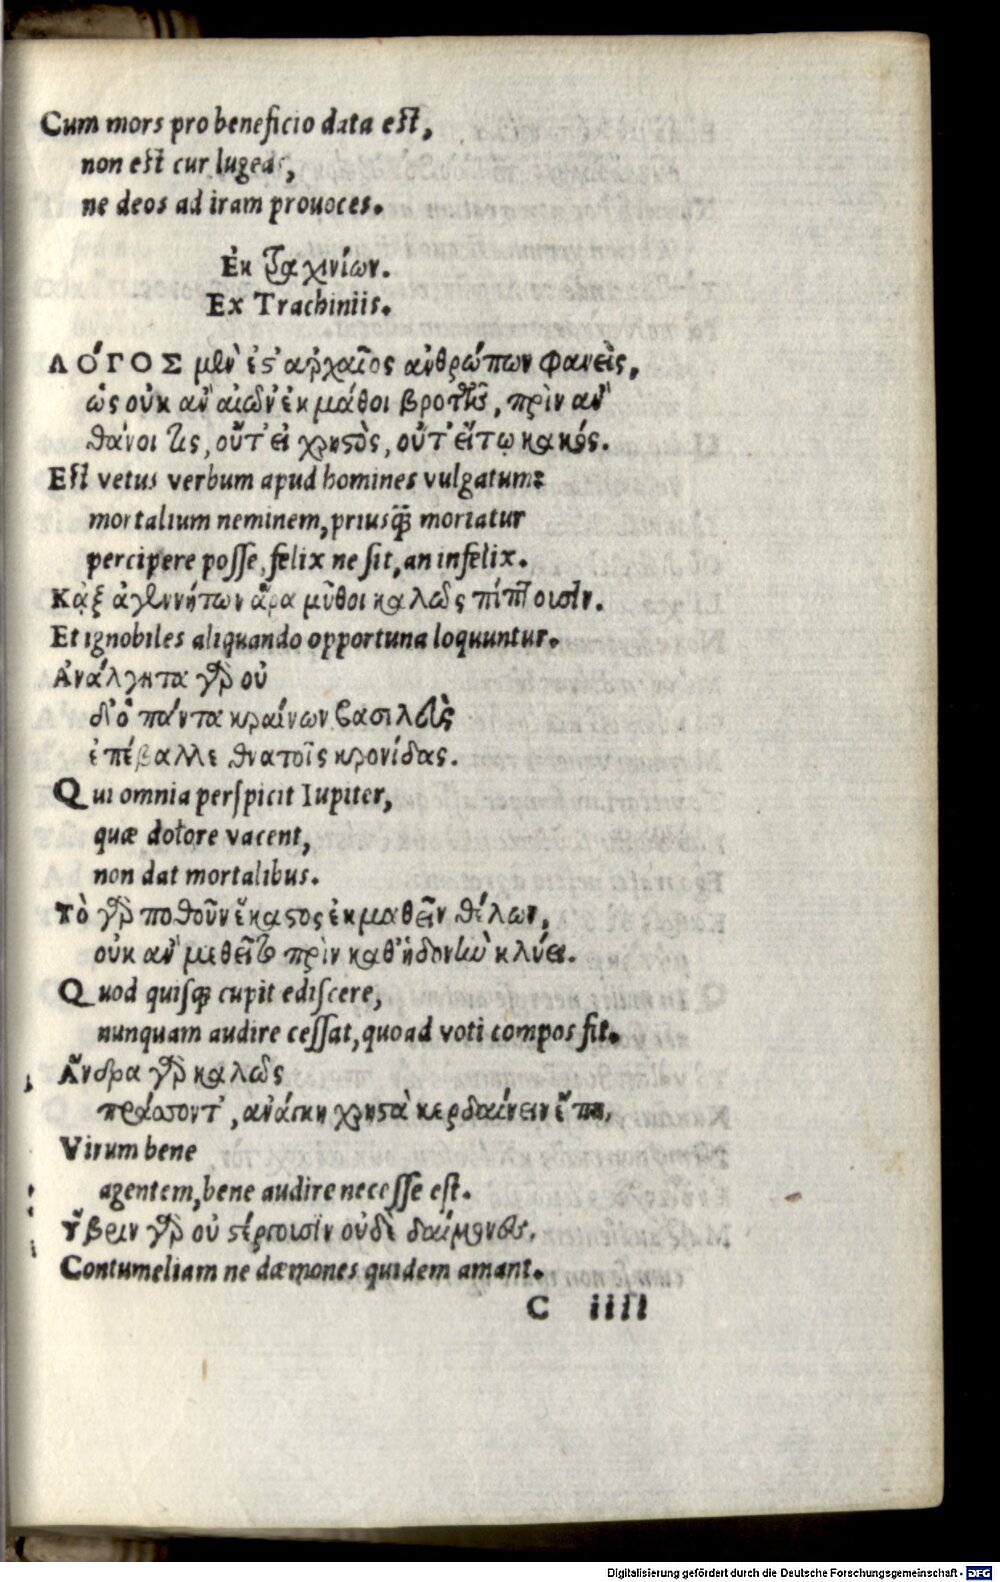 Cum mors pro beneficio data est,
non est cur lugeas,
ne deos ad iram prouoces.
Ἐκ τραχινίων.
Ex Trachiniis.
ΛΌΓΟΣ μὲν ἔς' ἀρχαῖος ἀνθρώπων φανεὶς,
ὡς οὐκ ἂν αἰῶν' ἐκμάθοι βροτῶν, πρὶν ἂν
θάνοι τις, οὔτ' εἰ χρηςὸς, οὔτ' εἴ τῳ κακός.
Est vetus verbum apud homines vulgatum:
mortalium neminem, priusq̃ moriatur
percipere posse, felix ne sit, an infelix.
Κᾀξ ἀγεννήτων ἄρα μῦθοι καλῶς πίπτουσιν.
Et ignobiles aliquando opportuna loquuntur.
Ἀνάλγητα γὰρ οὐ
δ' ὁ πάντα κραίνων βασιλεὺς
ἐπέβαλλε θνατοῖς κρονίδας.
Qui omnia perspicit Iupiter,
quæ dolore vacent,
non dat mortalibus.
Τὸ γὰρ ποθοῦν ἕκαςος ἐκμαθεῖν θέλων,
οὐκ ἂν μεθεῖτο πρὶν καθ' ἡδονὴν κλύει.
Quod quisq; cupit ediscere,
nunquam audire cessat, quoad voti compos sit.
Ἄνδρα γὰρ καλῶς
πράσσοντ', ἀνάγκη χρηςὰ κερδαίνειν ἔπη.
Virum bene
agentem, bene audire necesse est.
Ὕβριν γὰρ οὐ ςέργουσιν οὐδὲ δαίμονες.
Contumeliam ne dæmones quidem amant.
C iiii
Digitalisierung gefördert durch die Deutsche Forschungsgemeinschaft - DFG